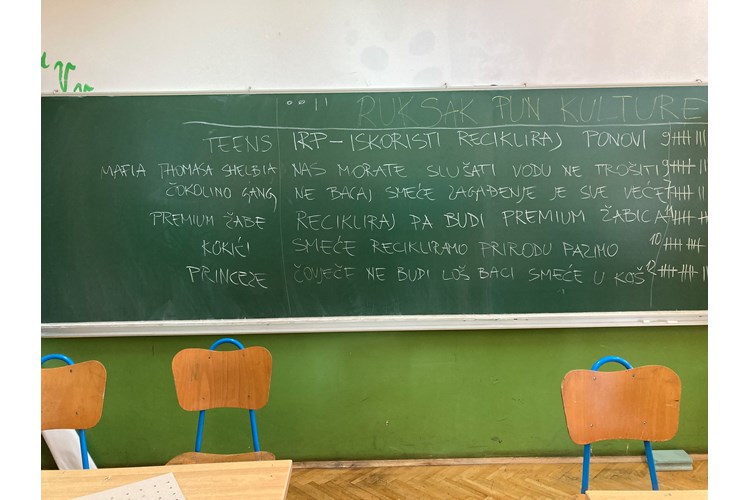 RUKSAK PUN KULTURE
TEENS IRP-ISKORISTI RECIKLIRAJ PONOVI 9
MAFIA THOMASA SHELBIA NAS MORATE SLUŠATI VODU NE TROŠITI 9
ČOKOLINO GANG NE BACAJ SMEĆE ZAGAĐENJE JE SVE VEĆE 7
PREMIUM ŽABE RECIKLIRAJ PA BUDI PREMIUM ŽABICA
KOKIĆI SMEĆE RECIKLIRAMO PRIRODU PAZIMO 10
PRINCEZE ČOVJEČE NE BUDI LOŠ BACI SMEĆE U KOŠ 12